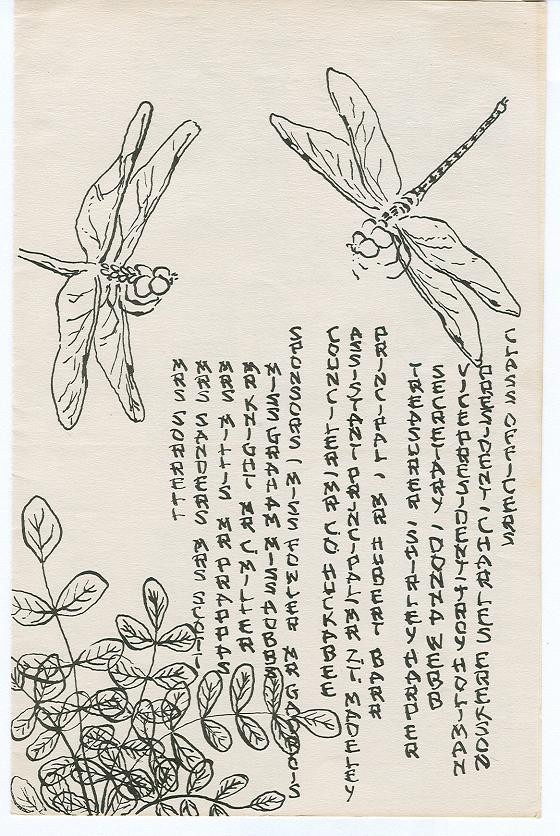 CLASS OFFICERS
PRESIDENT: CHARLES ERERSON
VICEPRESIDENT: TROY HOLIMAN
SECRETARY: DONNA WEBB
TREASURER: SHIRLEY HARPER
PRINCIPAL: MR HUBERT BARR
ASSISTANT PRINCIPAL: MR Z.T. MADELEY
COUNCILER: MR CO HUCKABEE
SPONSORS: MISS FOWLER MR
MISS GRAHAM MISS
MR KNIGHT MR C MILLER
MRS MILLIS MR
MRS SANDERS MRS
MRS SORRELL